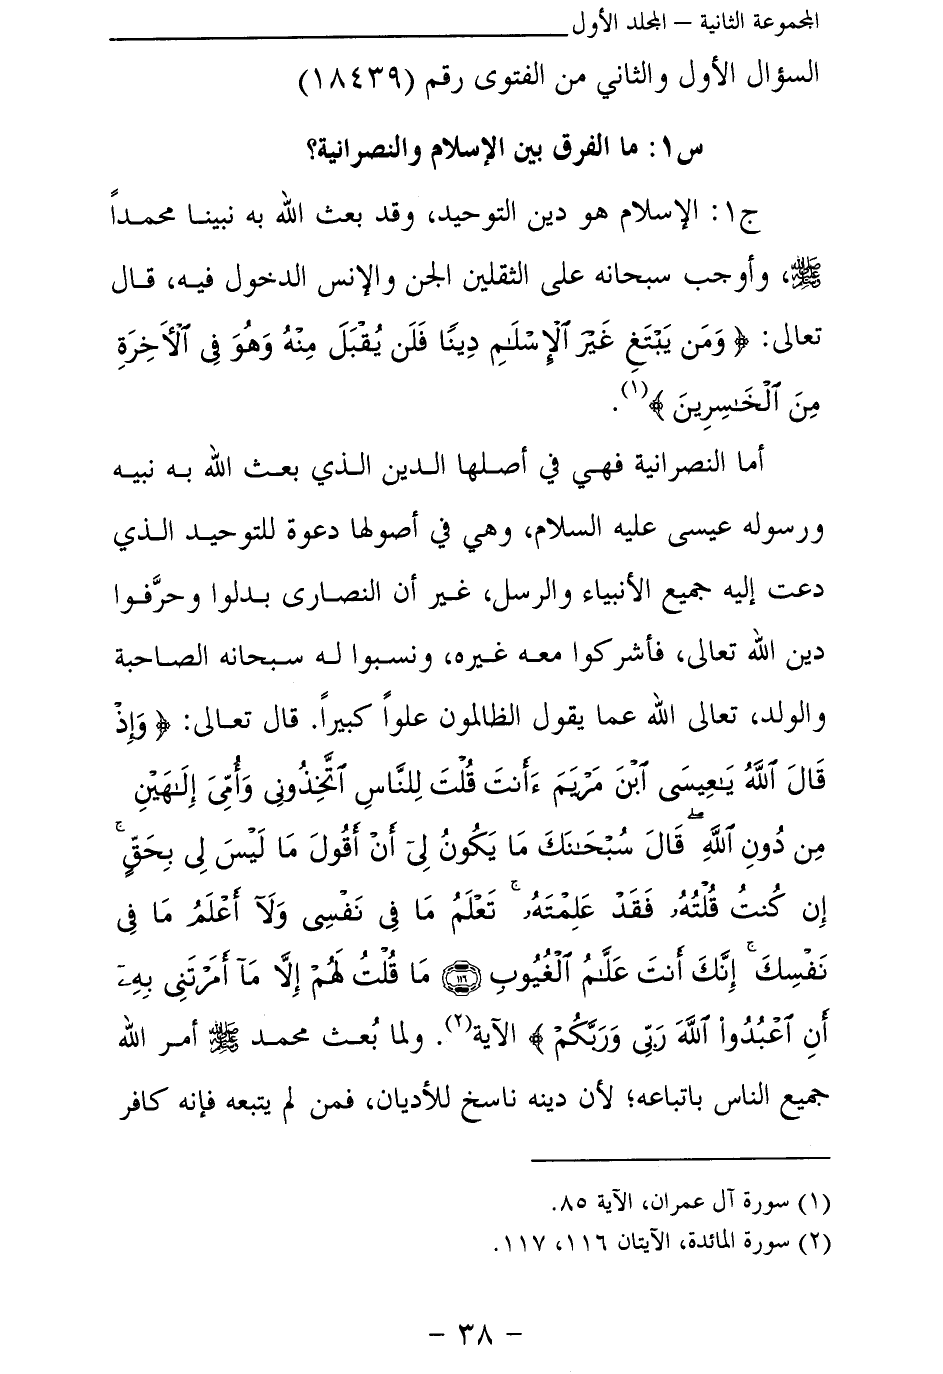 المجموعة الثانية – المجلد الأول
السؤال الأول والثاني من الفتوى رقم (١٨٤٣٩)
س١: ما الفرق بين الإسلام والنصرانية؟
ج١: الإسلام هو دين التوحيد، وقد بعث الله به نبينا محمداً
ﷺ، وأوجب سبحانه على الثقلين الجن والإنس الدخول فيه، قال
تعالى: ﴿ وَمَن يَبْتَغِ غَيْرَ ٱلْإِسْلَٰمِ دِينًا فَلَن يُقْبَلَ مِنْهُ وَهُوَ فِى ٱلْأَخِرَةِ
مِنَ ٱلْخَٰسِرِينَ ﴾(١).
أما النصرانية فهي في أصلها الدين الذي بعث الله به نبيه
ورسوله عيسى عليه السلام، وهي في أصولها دعوة للتوحيد الذي
دعت إليه جميع الأنبياء والرسل، غير أن النصارى بدلوا وحرَّفوا
دين الله تعالى، فأشركوا معه غيره، ونسبوا له سبحانه الصاحبة
والولد، تعالى الله عما يقول الظالمون علواً كبيراً. قال تعالى: ﴿ وَإِذْ
قَالَ ٱللَّهُ يَٰعِيسَى ٱبْنَ مَرْيَمَ ءَأَنتَ قُلْتَ لِلنَّاسِ ٱتَّخِذُونِى وَأُمِّىَ إِلَٰهَيْنِ
مِن دُونِ ٱللَّهِ ۖ قَالَ سُبْحَٰنَكَ مَا يَكُونُ لِىٓ أَنْ أَقُولَ مَا لَيْسَ لِى بِحَقٍّ ۚ
إِن كُنتُ قُلْتُهُۥ فَقَدْ عَلِمْتَهُۥ ۚ تَعْلَمُ مَا فِى نَفْسِى وَلَآ أَعْلَمُ مَا فِى
نَفْسِكَ ۚ إِنَّكَ أَنتَ عَلَّٰمُ ٱلْغُيُوبِ ١١٦ مَا قُلْتُ لَهُمْ إِلَّا مَآ أَمَرْتَنِى بِهِۦٓ
أَنِ ٱعْبُدُوا۟ ٱللَّهَ رَبِّى وَرَبَّكُمْ ﴾ الآية(٢). ولما بُعث محمد ﷺ أمر الله
جميع الناس باتباعه؛ لأن دينه ناسخ للأديان، فمن لم يتبعه فإنه كافر
(١) سورة آل عمران، الآية ٨٥.
(٢) سورة المائدة، الآيتان ١١٦، ١١٧.
– ٣٨ –